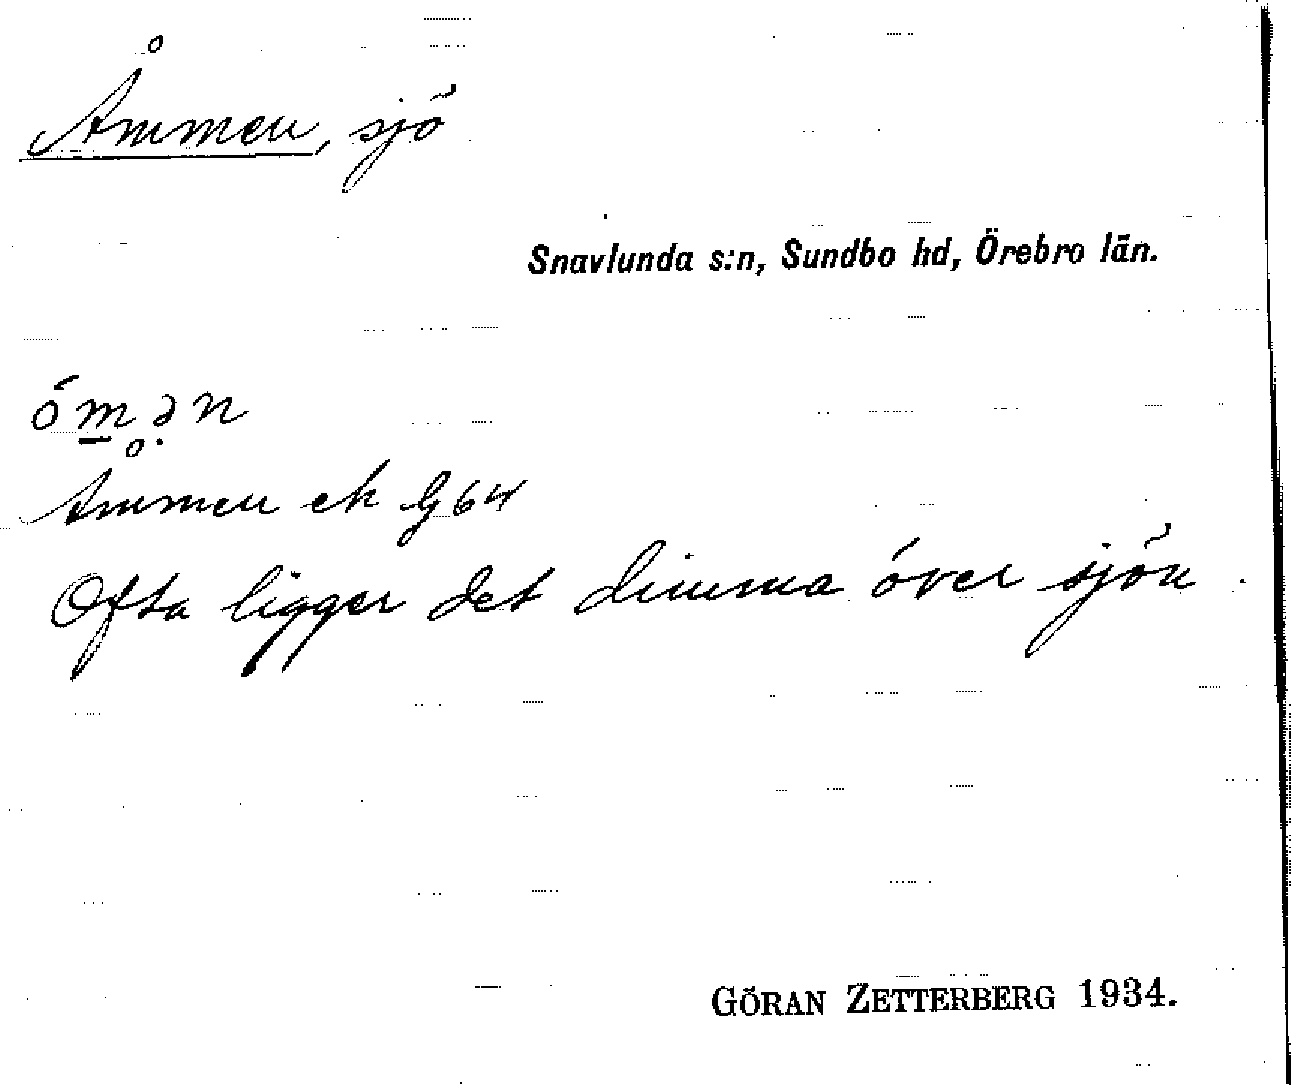 Åmmen, sjö
Snavlunda s:n, Sundbo hd, Örebro län.
ómən
Åmmen ek G64
Ofta ligger det dimma över sjön.
GÖRAN ZETTERBERG 1934.